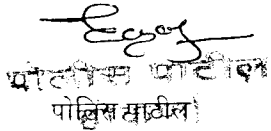 पोलीस पाटील
पोलिस पाटील